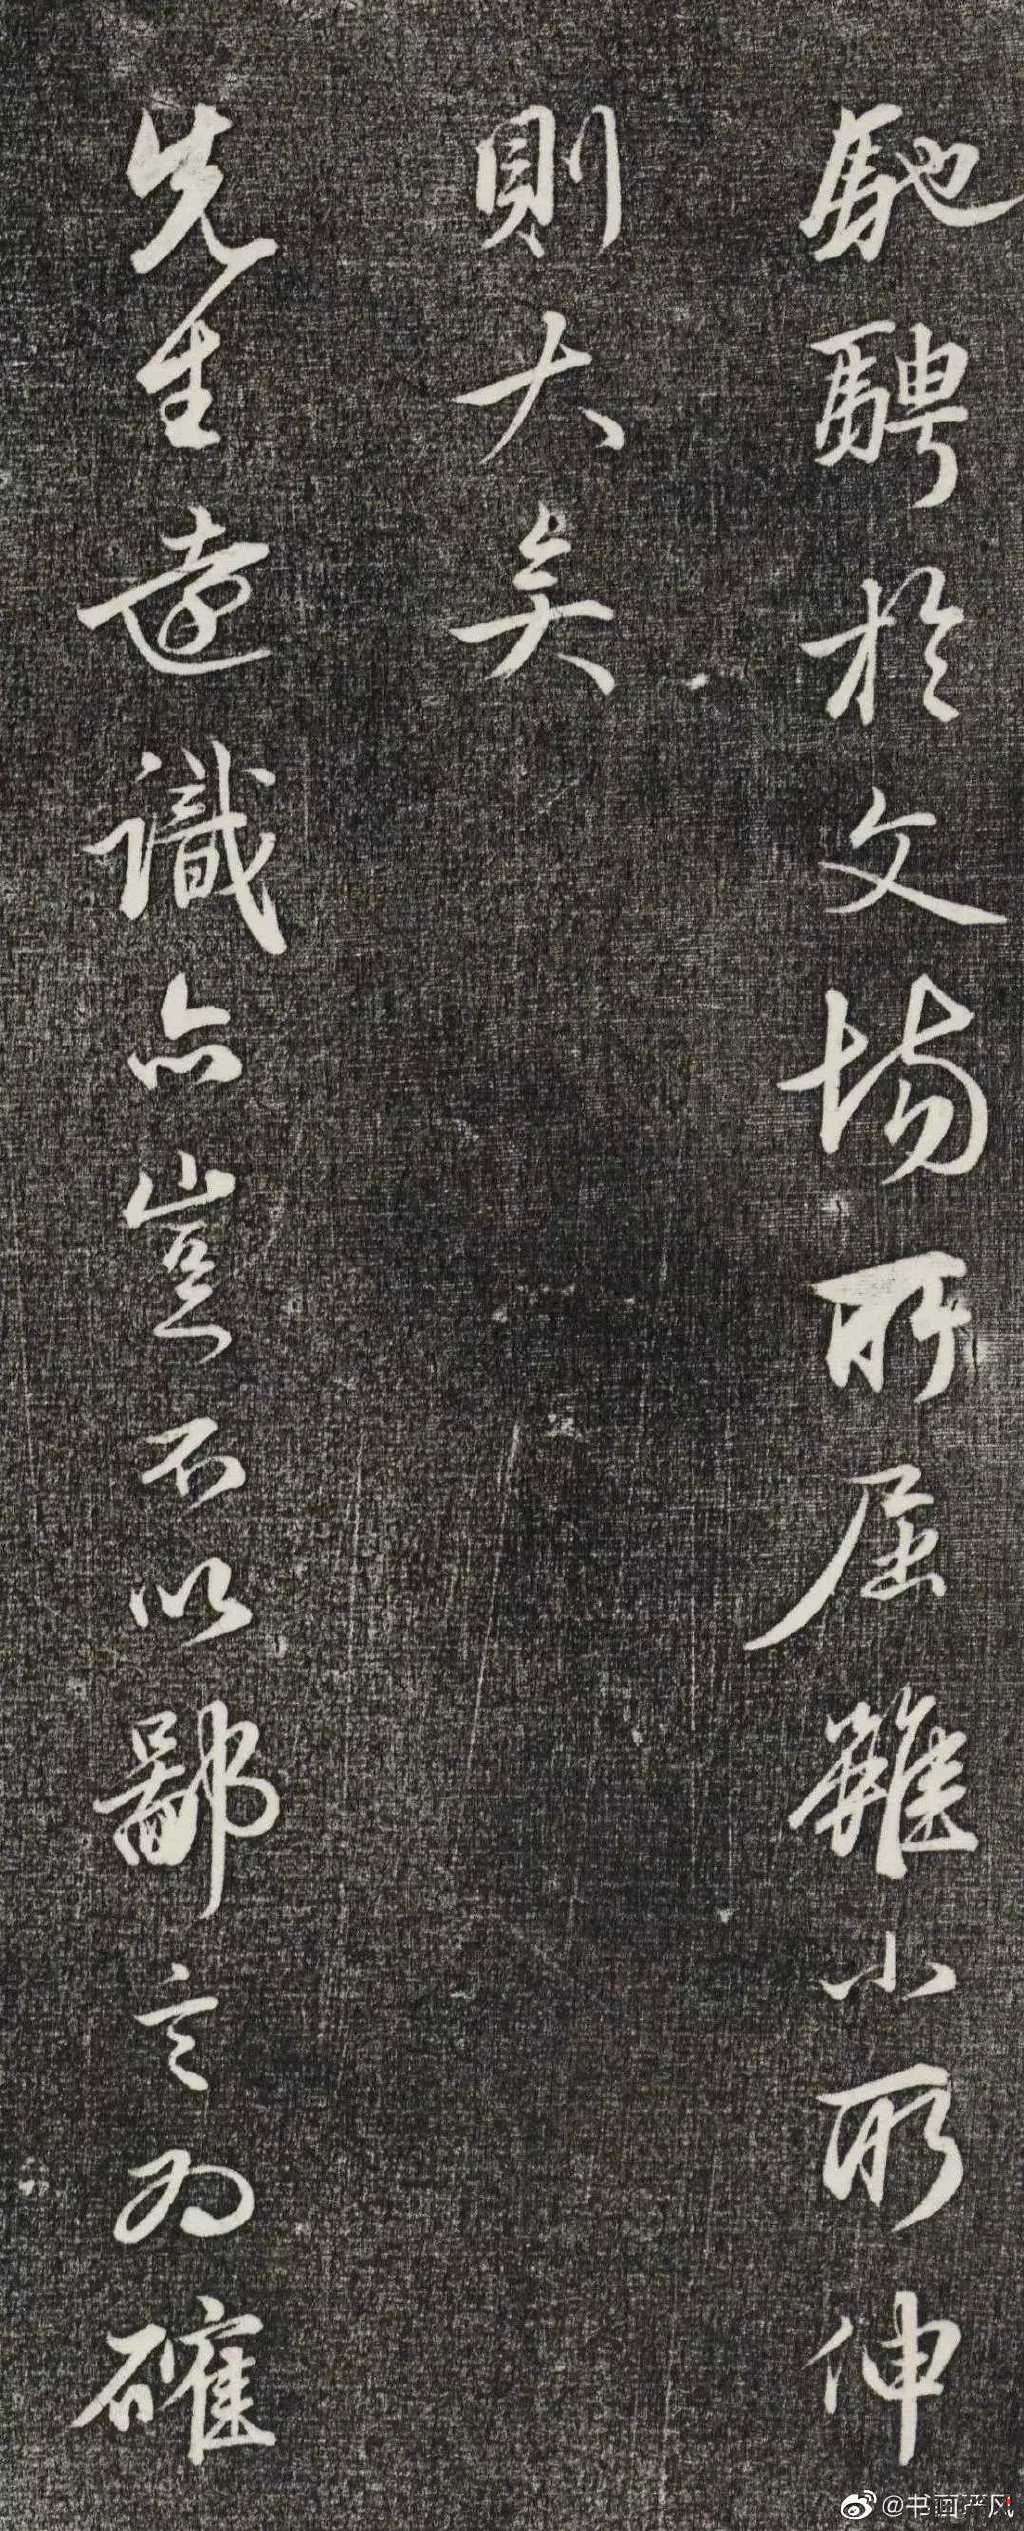 馳騁於文場所屈雖小所伸
則大矣
先生遠識亦豈不以鄙言為確
@书画严风